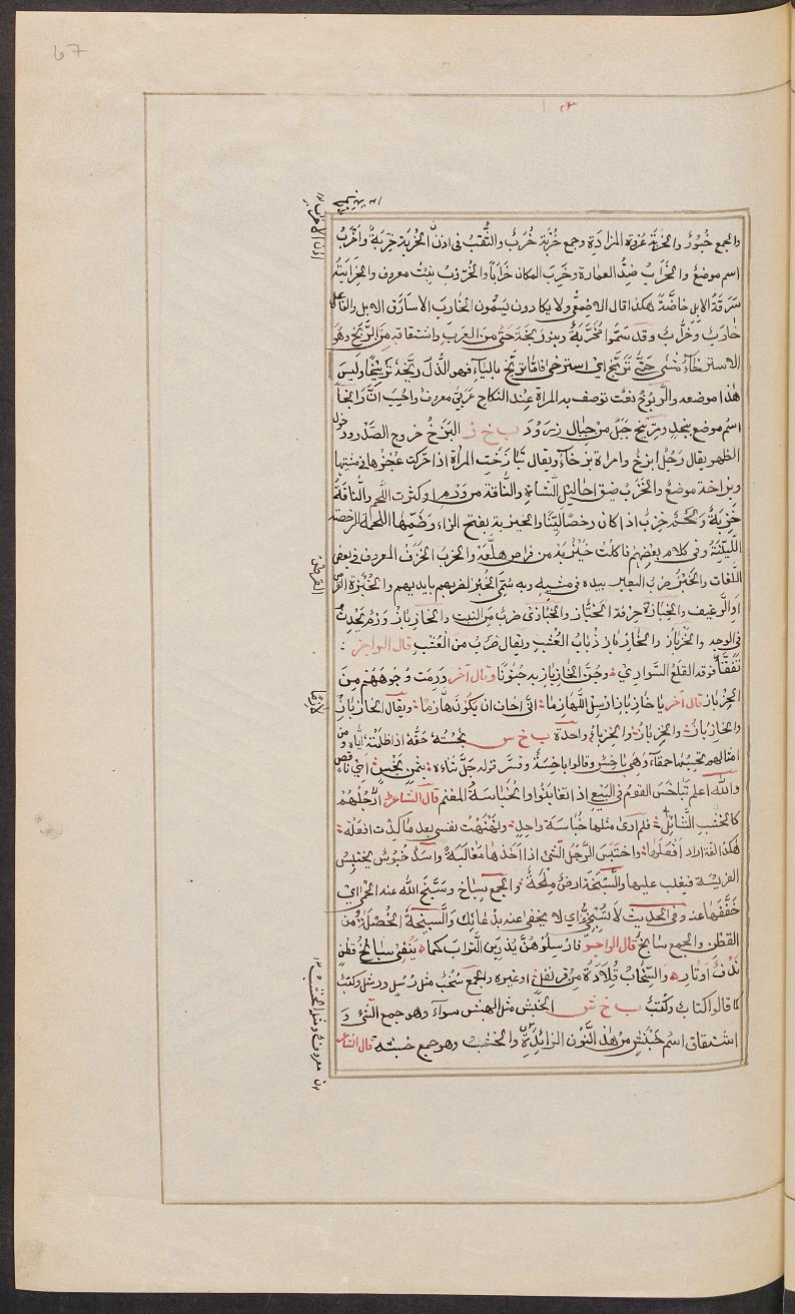 67
والجمع خُبُورٌ والخُرْبَة عُروة المزادة وجمع خُرْبَة خُرَبٌ والثَّقب فى اذن الخُرْبَة خرْبَةٌ واَخْرُبُ
اسم موضع والخَرَابُ ضِدُّ العمارة وخَرِبَ المكان خَرَابًا والخُرّوب نبتٌ معروف والخِرَابَةُ
سَرَقةُ الابل خاصَّةً هكذا قال الاصمعى ولا يكادون يسمّون الخارب الا سارق الابل والفاعل
خارب وخُرّاب وقد سمّوا مُخَرَّبَةُ وبنو رَبْخَة حَىّ من العرب واشتقاقه من الرَّبْخ وهو
الاسترخاء مشى حَتّى تَرَبَّخ اى استرخى فامّا تَرَيّخ بالياء فهو الذُّلّ ريَّخَهُ تَرْيِيخًا وليس
هذا موضعه والرَّبُوخ نعت توصف به المراة عند النكاح عَربىّ معروف واحْسِبَ انَّ رَابخًا
اسم موضع بنجد ومُرْبِخ جَبَل من جبال زَرُود ب خ ز البَزَخُ خروج الصَّدر ودخول
الظهر يقال رَجُل ابْزَخُ وامراة بزخاء ويقال تَبَازَخَتِ المرْأة اذا حرّكت عَجُزها فى مشيتها
وبُزاخة موضعٌ والخَزَبُ ضِيق احاليل الشاة والناقة من ورم او كثرت اللحم والناقةُ
خَزِبَةٌ ولحم خَزِبٌ اذا كان رَخْصًا ليِّنًا والخيزبة بفتح الزاء وضمها اللحمة الرخصة
اللَّيِّنةُ وفى كلام بعضهم فاكلتُ خَيْزَبَةً من فراص هلّعَةٍ والخزب الخزف المعروف فى بعض
اللغات والخَبْز ضرب البعير بيده فى مشيه وبه سُمِّىَ الخُبز لضربهم بايديهم والخُبْزة القرص
او الرَّغيف والخِبَازة حِرفة الخبّاز والخُبّازى ضربٌ من النبت والخازِباز وَرَم يَحْدِث
فى الوجه والخِزباز والخازِباز ذُباب العُشْب ويقال ضَرب من العُشْب قال الراجز :
تفقّأ فوقه القَلَعُ السّوارى وجُنَّ الخازِباز به جنونا وقال آخر ورمت وجوههم من
الخِزْباز قال آخر يا خازِباز ارسِل اللهازِما انّى اخاف ان يكونَ لازِمَا ويقال الخازباز
والخازِباز والخِزباز والخزباء واحدة ب خ س بخسته حَقّه اذا ظلمته اياه ومن
امثالهم تحسبها حمقاء وهى باخِس وقالوا باخِسَة وفسّر قوله جلّ ثناءه بثمنٍ بَخْسٍ اى ناقص
والله اعلم تَبَاخَسَ القوم فى البَيْع اذا تغابنوا والخُبَاسَةُ المغنم قال الشاعر
فلم ارى مثلها خُبَاسَةَ واحِدٍ ونَهْنَهْتُ نفسى بعد ما كِدْت افعَلَهْ
هكذا لغة اراد افعلها واختَبَسَ الرَّجل الشئ اذا اخذها مُغَالَبَةً واسَدٌ خَبُوسٌ يختبس
الفريسة فيغلب عليها والسَّبَخَة ارضٌ مِلْحَةٌ والجمع سِبَاخ وسَبَّخَ الله عنه الحمّى اى
خَفَّفَها عنه وفى الحديث لا تُسَبِّخى اى لا يخفى عنه بدعائك والسَّبِيخَة الخُصْلَة من
القطن والجمع سبائخ قال الراجز فارسلوهنّ يُذْرِينَ التّراب كما يَنفى سبائخ قطن
ندفُ اَوْتارِ والسِّخابُ قِلادَة من قرنفل او غيره والجمع سُخُبٌ مثل رُسُل ورُسْل وكُتُب
كما قالوا كتاب وكُتُبٌ ب خ ش الخَبْش مثل الهبش سواء وهو جمع الشئ و
اشتقاق اسم خَنْبَش من هذا النون الزائدة والخَشَب وهو جمع خشبة قال الشاعر